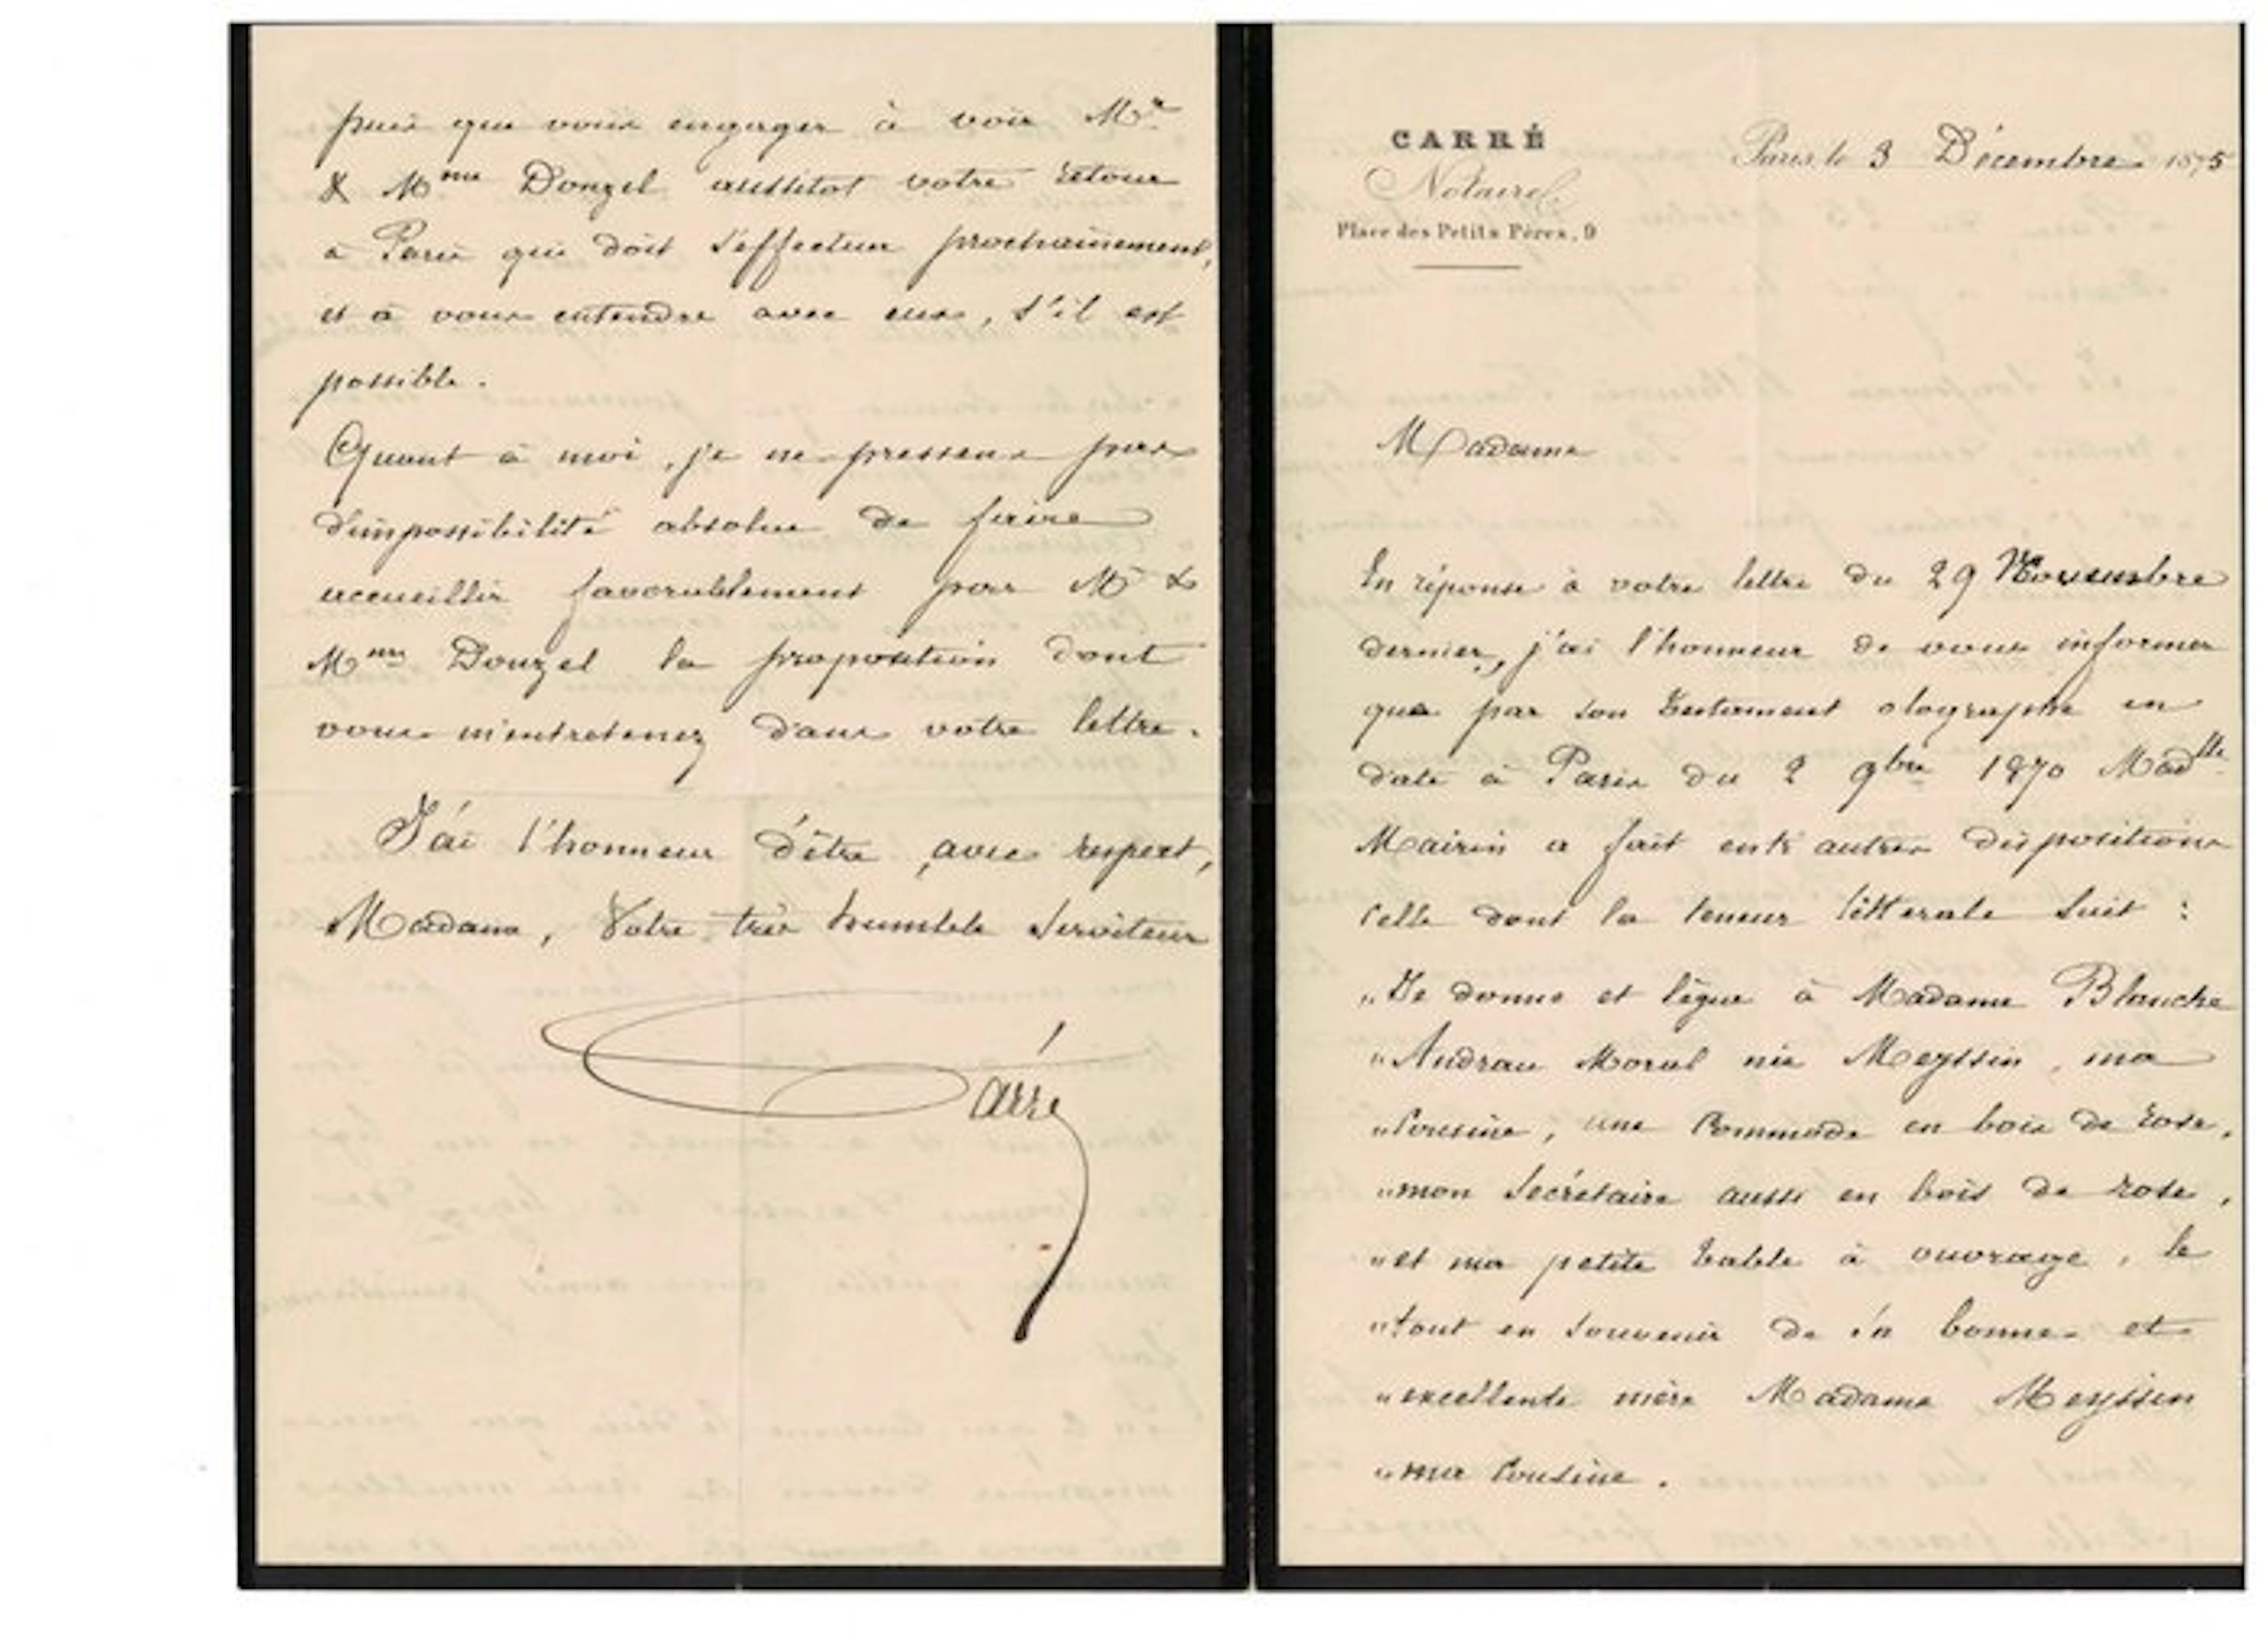 puis que vous engager à voir Mr
& Mme Donzel aussitot votre retour
à Paris qui doit s'effectuer prochainement,
et à vous entendre avec eux, s'il est
possible.
Quant à moi, je ne pressens pas
d'impossibilité absolue de faire
accueillir favorablement par Mr &
Mme Donzel la proposition dont
vous m'entretenez dans votre lettre.
J'ai l'honneur d'être, avec respect,
Madame, Votre très humble Serviteur
Carré
CARRÉ
Notaire
Place des Petits Pères, 9
Paris, le 3 Décembre 1875
Madame
En réponse à votre lettre du 29 Novembre
dernier, j'ai l'honneur de vous informer
que par son testament olographe en
date à Paris du 2 9bre 1870 Madlle
Mairin a fait entr'autres dispositions
celle dont la teneur littérale suit :
"Je donne et lègue à Madame Blanche
"Andrau Moral née Meyssin, ma
"Cousine, une Commode en bois de rose,
"mon Secrétaire aussi en bois de rose,
"et ma petite table à ouvrage, le
"tout en souvenir de sa bonne et
"excellente mère Madame Meyssin
"ma Cousine.